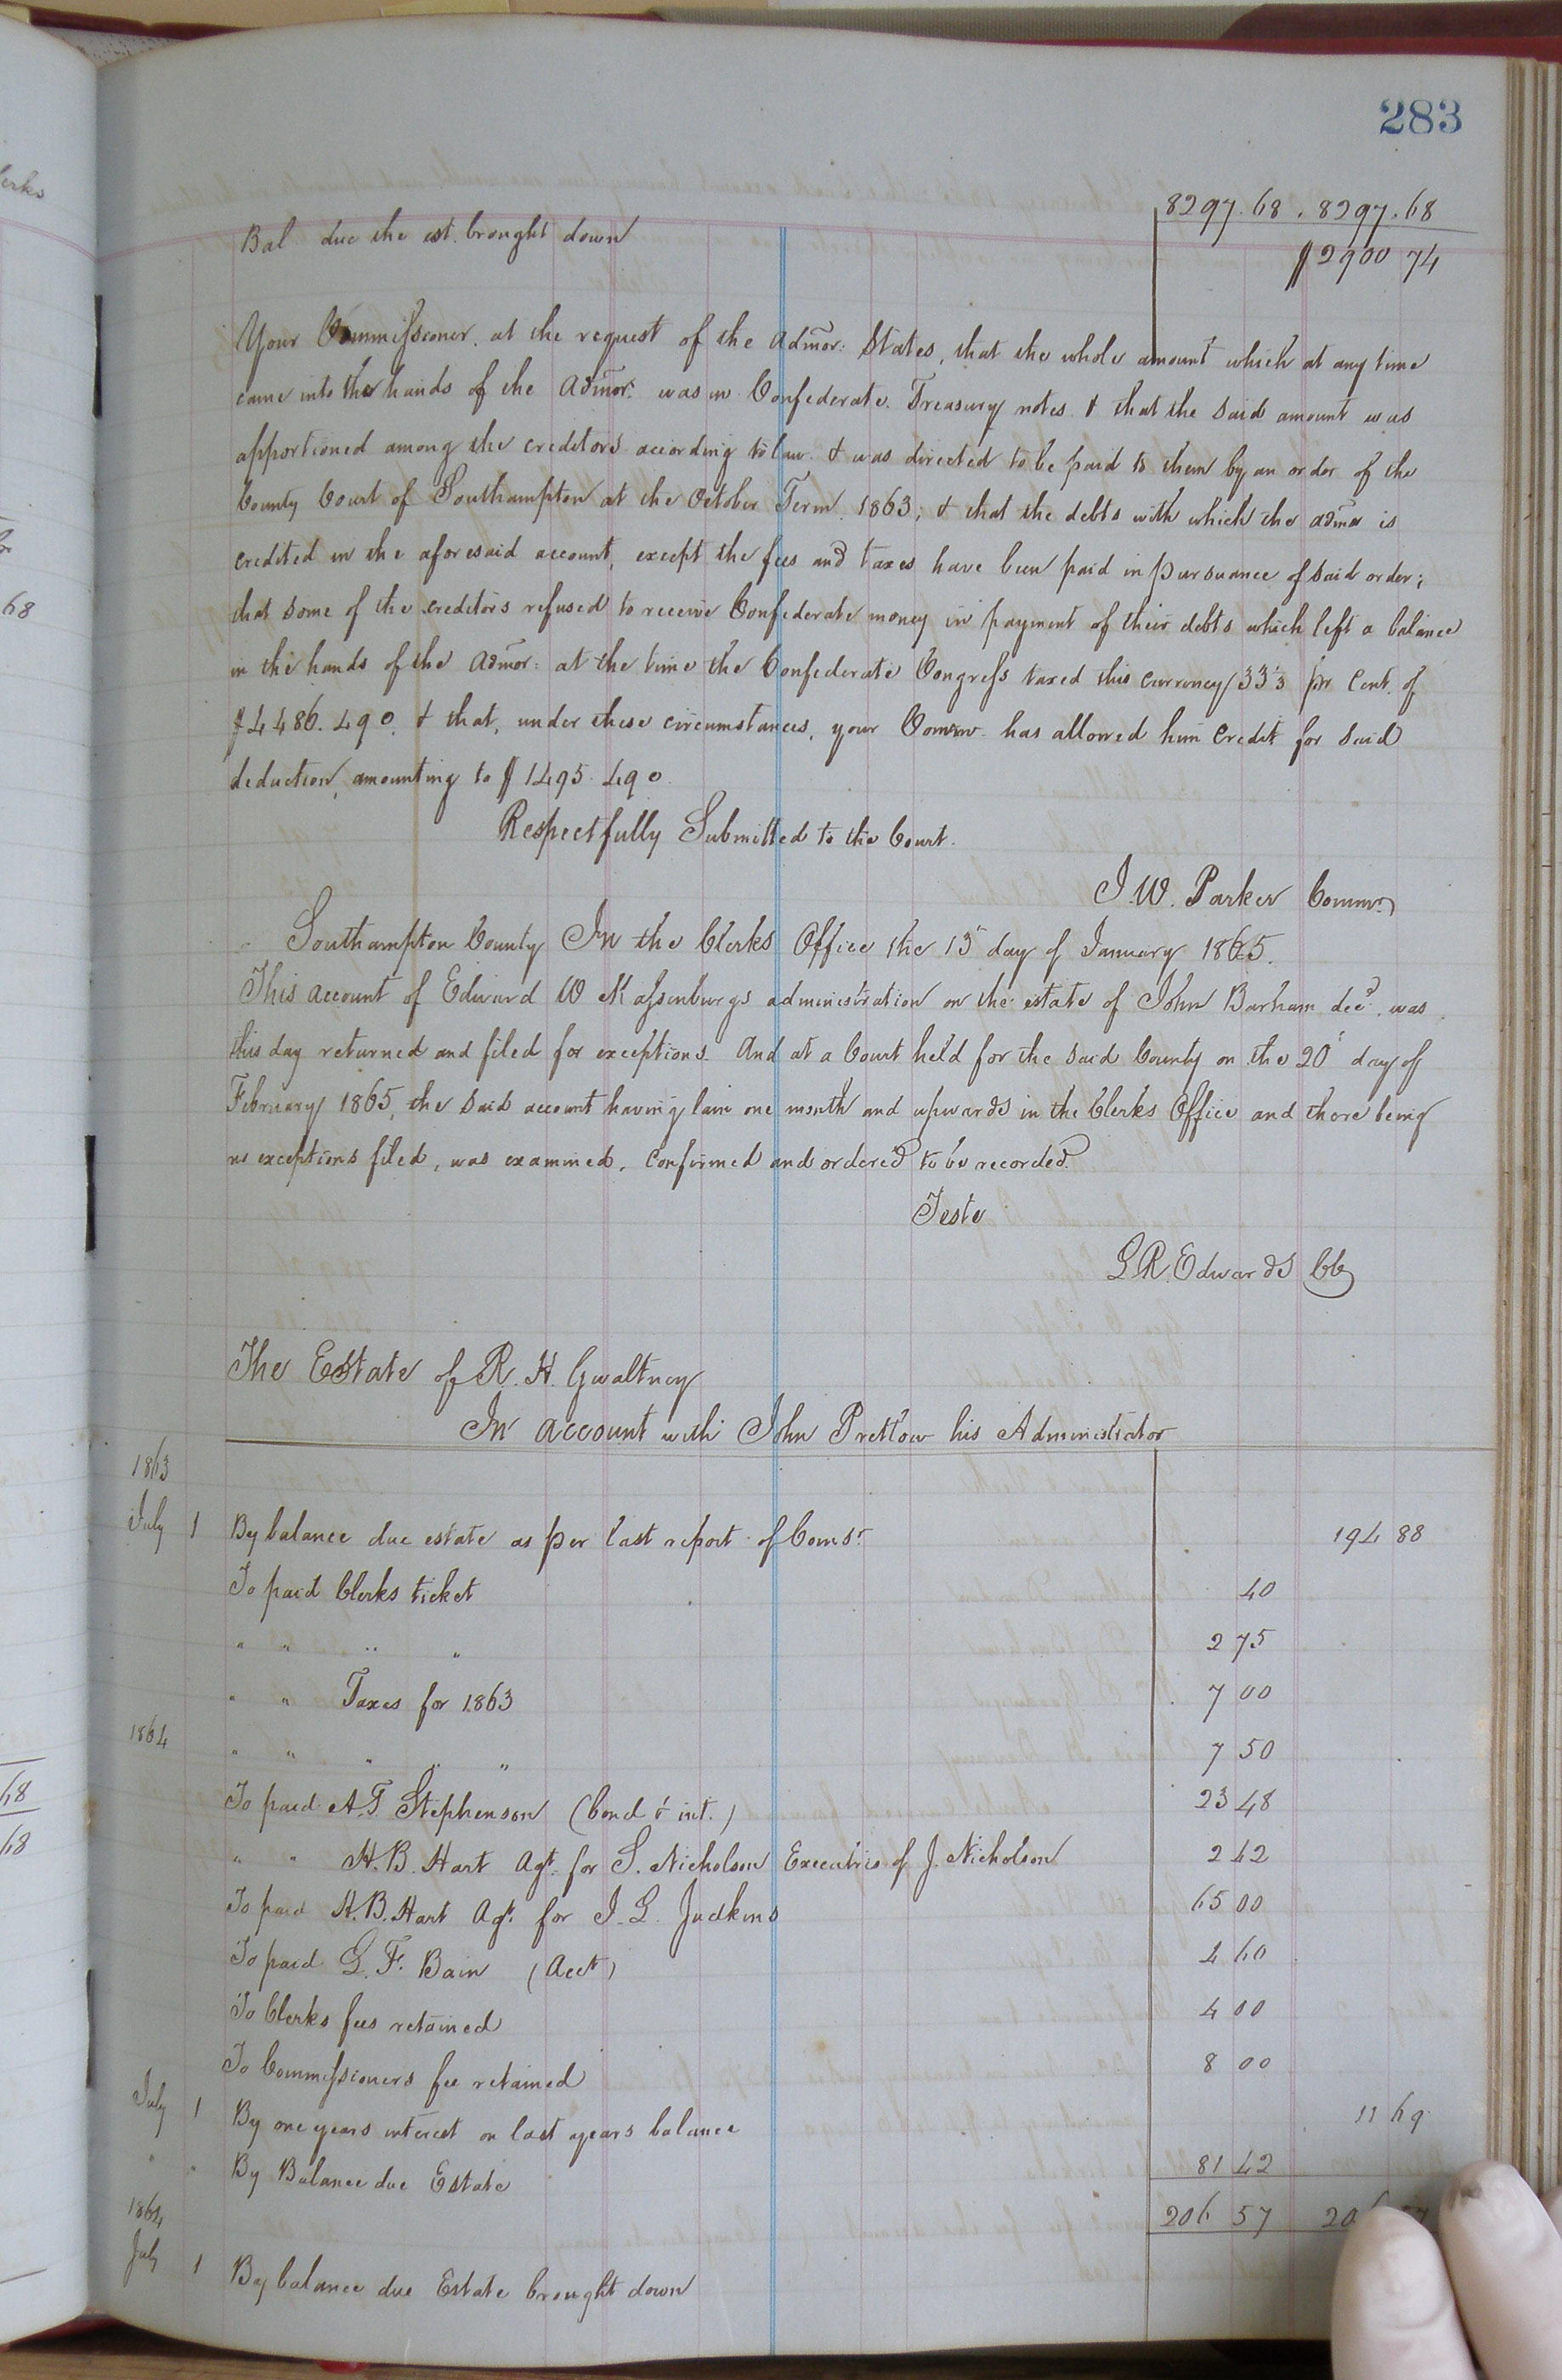 erks
68
68
68
283
8297.68 . 8297.68
Bal due the est. brought down
$2900 74
Your Commissioner, at the request of the Admor: States, that the whole amount which at any time
came into the hands of the Admor: was in Confederate Treasury notes & that the said amount was
apportioned among the creditors according to law & was directed to be paid to them by an order of the
County Court of Southampton at the October Term 1863; & that the debts with which the admor is
credited in the aforesaid account, except the fees and taxes have been paid in pursuance of said order;
that some of the creditors refused to receive Confederate money in payment of their debts which left a balance
in the hands of the Admor: at the time the Confederate Congress taxed this currency 33⅓ pr Cent. of
$4486.490. & that, under these circumstances, your Commr. has allowed him Credit for said
deduction, amounting to $1495.490.
Respectfully Submitted to the Court.
J. W. Parker Commr.
Southampton County In the Clerks Office the 13 day of January 1865.
This account of Edward W Massenburgs administration on the estate of John Barham decd. was
this day returned and filed for exceptions. And at a Court held for the said County on the 20 day of
February 1865, the said account having lain one month and upwards in the Clerks Office and there being
no exceptions filed, was examined, Confirmed and ordered to be recorded.
Teste
L R. Edwards CC
The Estate of R. H. Gwaltney
In account with John Pretlow his Administrator
1863
July 1 By balance due estate as per last report of Comsr. 194 88
To paid Clerks ticket 40
" " " " 2 75
" " Taxes for 1863 7 00
1864 " " " " " 7 50
To paid A. T. Stephenson (bond & int.) 23 48
" " H. B. Hart Agt. for S. Nicholson Executrix of J. Nicholson 2 42
To paid H. B. Hart Agt. for J. L. Judkins 65 00
To paid G. F. Bain (Acct) 4 60
To Clerks fees retained 4 00
To Commissioners fee retained 8 00
July 1 By one years interest on last years balance 11 69
" " By Balance due Estate 81 42
206 57 206 57
1864
July 1 By balance due Estate brought down